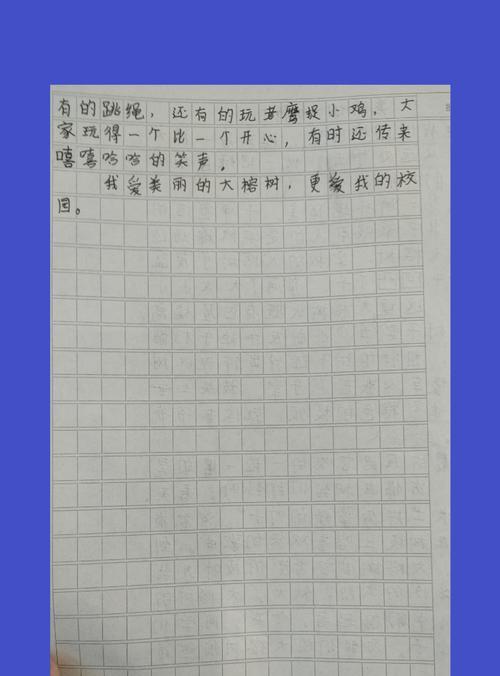 有的跳绳，还有的玩老鹰捉小鸡，大
家玩得一个比一个开心，有时还传来
嘻嘻哈哈的笑声。
我爱美丽的大榕树，更爱我的校
园。